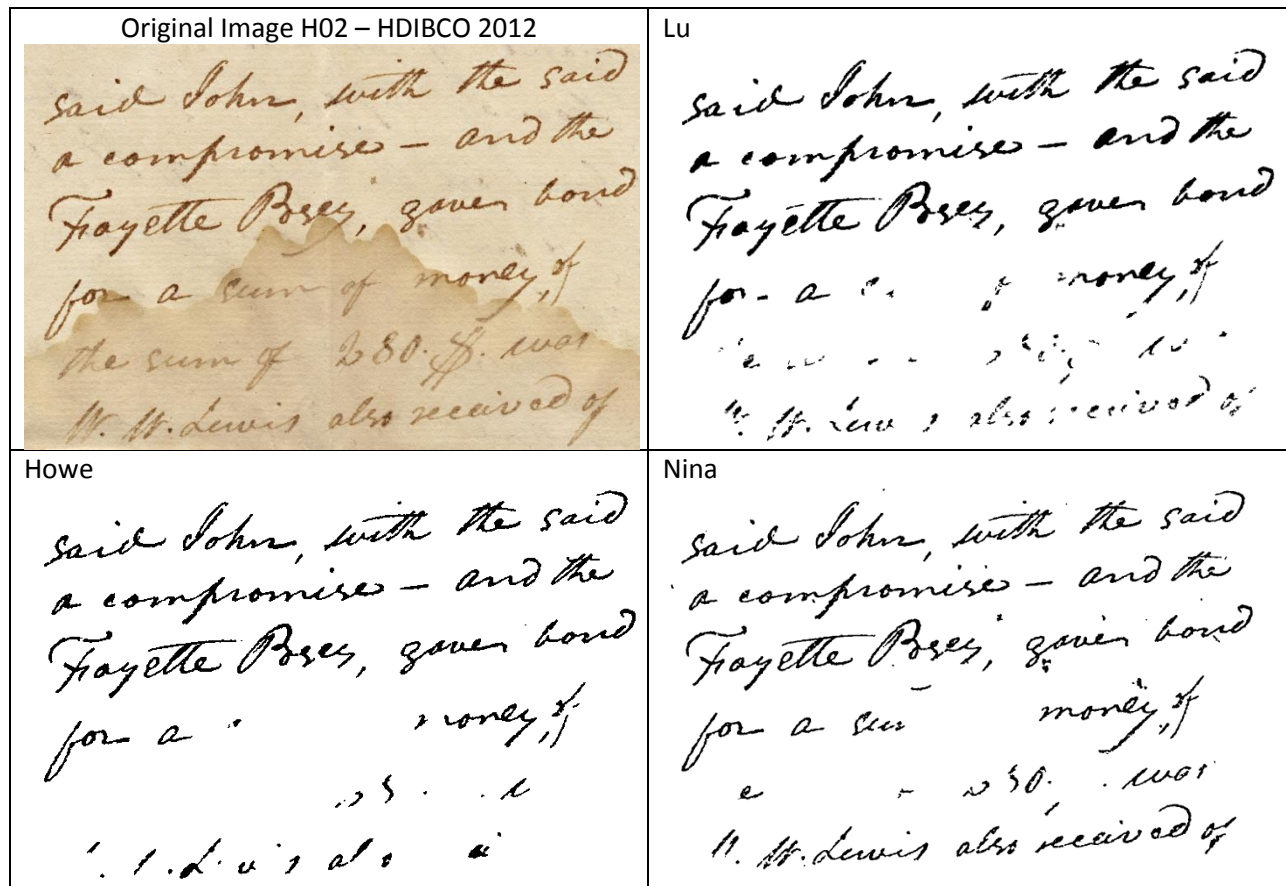 Original Image H02 – HDIBCO 2012
said John, with the said
a compromise – and the
Fayette Posey, gave bond
for a sum of money, of
the sum of 280.$. was
W. W. Lewis also received of
Lu
said John, with the said
a compromise – and the
Fayette Posey, gave bond
for a money, of
also received of
Howe
said John, with the said
a compromise – and the
Fayette Posey, gave bond
for a money, of
Nina
said John, with the said
a compromise – and the
Fayette Posey, gave bond
for a money, of
was
W. Lewis also received of